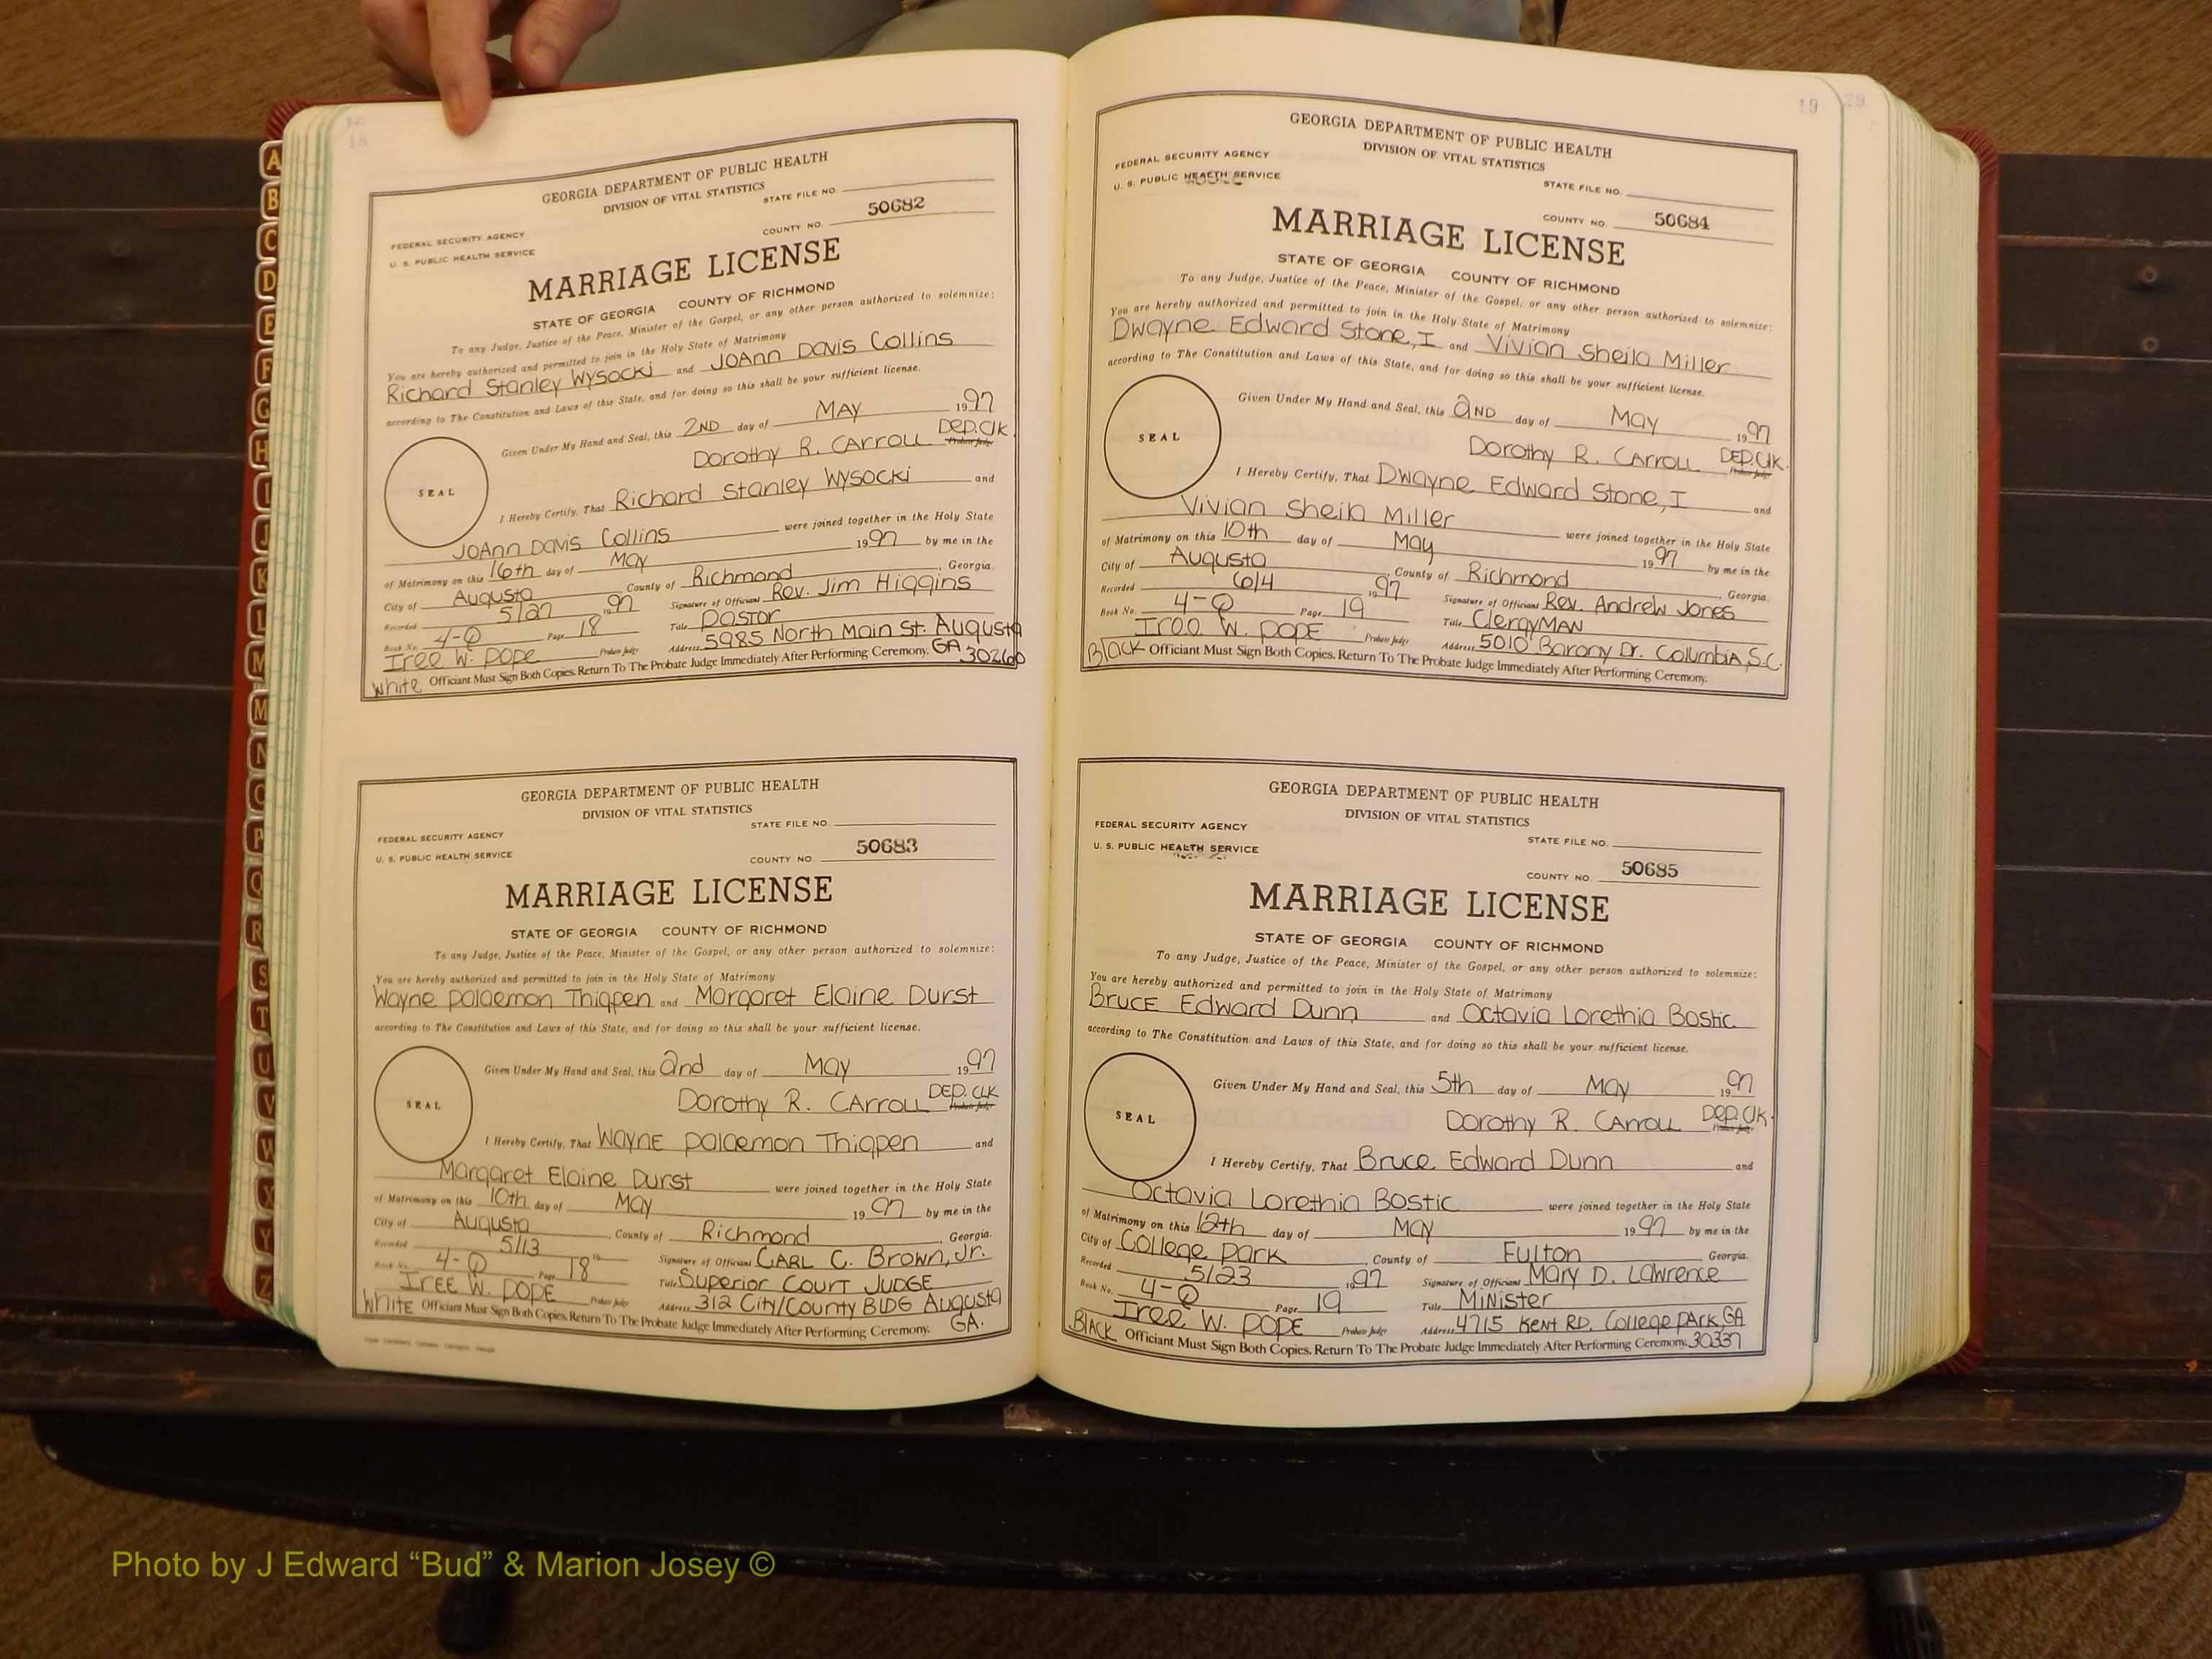 18
GEORGIA DEPARTMENT OF PUBLIC HEALTH
DIVISION OF VITAL STATISTICS
STATE FILE NO.
FEDERAL SECURITY AGENCY
U. S. PUBLIC HEALTH SERVICE
COUNTY NO. 50682
MARRIAGE LICENSE
STATE OF GEORGIA COUNTY OF RICHMOND
To any Judge, Justice of the Peace, Minister of the Gospel, or any other person authorized to solemnize:
You are hereby authorized and permitted to join in the Holy State of Matrimony
Richard Stanley Wysocki and JoAnn Davis Collins
according to The Constitution and Laws of this State, and for doing so this shall be your sufficient license.
SEAL
Given Under My Hand and Seal, this 2ND day of MAY 1997
Dorothy R. Carroll DEP. Clk Probate Judge
I Hereby Certify, That Richard Stanley Wysocki and
JoAnn Davis Collins were joined together in the Holy State
of Matrimony on this 16th day of May 1997 by me in the
City of Augusta, County of Richmond, Georgia.
Recorded 5/27 1997 Signature of Officiant Rev. Jim Higgins
Book No. 4-Q Page 18 Title Pastor
Iree W. Pope Probate Judge Address 5985 North Main St. Augusta
GA 30260
White Officiant Must Sign Both Copies. Return To The Probate Judge Immediately After Performing Ceremony.
GEORGIA DEPARTMENT OF PUBLIC HEALTH
DIVISION OF VITAL STATISTICS
STATE FILE NO.
FEDERAL SECURITY AGENCY
U. S. PUBLIC HEALTH SERVICE
COUNTY NO. 50683
MARRIAGE LICENSE
STATE OF GEORGIA COUNTY OF RICHMOND
To any Judge, Justice of the Peace, Minister of the Gospel, or any other person authorized to solemnize:
You are hereby authorized and permitted to join in the Holy State of Matrimony
Wayne Palaemon Thigpen and Margaret Elaine Durst
according to The Constitution and Laws of this State, and for doing so this shall be your sufficient license.
SEAL
Given Under My Hand and Seal, this 2nd day of May 1997
Dorothy R. Carroll DEP. CLK Probate Judge
I Hereby Certify, That Wayne Palaemon Thigpen and
Margaret Elaine Durst were joined together in the Holy State
of Matrimony on this 10th day of May 1997 by me in the
City of Augusta, County of Richmond, Georgia.
Recorded 5/13 19 Signature of Officiant Carl C. Brown, Jr.
Book No. 4-Q Page 18 Title Superior Court Judge
Iree W. Pope Probate Judge Address 312 City/County BLDG Augusta
GA.
White Officiant Must Sign Both Copies. Return To The Probate Judge Immediately After Performing Ceremony.
19 29
GEORGIA DEPARTMENT OF PUBLIC HEALTH
DIVISION OF VITAL STATISTICS
FEDERAL SECURITY AGENCY
U. S. PUBLIC HEALTH SERVICE
STATE FILE NO.
COUNTY NO. 50684
MARRIAGE LICENSE
STATE OF GEORGIA COUNTY OF RICHMOND
To any Judge, Justice of the Peace, Minister of the Gospel, or any other person authorized to solemnize:
You are hereby authorized and permitted to join in the Holy State of Matrimony
Dwayne Edward Stone, I and Vivian Sheila Miller
according to The Constitution and Laws of this State, and for doing so this shall be your sufficient license.
SEAL
Given Under My Hand and Seal, this 2ND day of May 1997
Dorothy R. Carroll DEP. Clk. Probate Judge
I Hereby Certify, That Dwayne Edward Stone, I and
Vivian Sheila Miller were joined together in the Holy State
of Matrimony on this 10th day of May 1997 by me in the
City of Augusta, County of Richmond, Georgia.
Recorded 6/4 1997 Signature of Officiant Rev. Andrew Jones
Book No. 4-Q Page 19 Title Clergyman
Iree W. Pope Probate Judge Address 5010 Barony Dr. Columbia, S.C.
Black Officiant Must Sign Both Copies. Return To The Probate Judge Immediately After Performing Ceremony.
GEORGIA DEPARTMENT OF PUBLIC HEALTH
DIVISION OF VITAL STATISTICS
FEDERAL SECURITY AGENCY
U. S. PUBLIC HEALTH SERVICE
STATE FILE NO.
COUNTY NO. 50685
MARRIAGE LICENSE
STATE OF GEORGIA COUNTY OF RICHMOND
To any Judge, Justice of the Peace, Minister of the Gospel, or any other person authorized to solemnize:
You are hereby authorized and permitted to join in the Holy State of Matrimony
Bruce Edward Dunn and Octavia Lorethia Bostic
according to The Constitution and Laws of this State, and for doing so this shall be your sufficient license.
SEAL
Given Under My Hand and Seal, this 5th day of May 1997
Dorothy R. Carroll Dep. Clk. Probate Judge
I Hereby Certify, That Bruce Edward Dunn and
Octavia Lorethia Bostic were joined together in the Holy State
of Matrimony on this 12th day of May 1997 by me in the
City of College Park, County of Fulton Georgia.
Recorded 5/23 1997 Signature of Officiant Mary D. Lawrence
Book No. 4-Q Page 19 Title Minister
Iree W. Pope Probate Judge Address 4715 Kent Rd. College Park, GA
Black Officiant Must Sign Both Copies. Return To The Probate Judge Immediately After Performing Ceremony. 30337
A
B
C
D
E
F
G
H
I
J
K
L
M
M
N
O
P
Q
R
S
T
U
V
W
X
Y
Z
Photo by J Edward “Bud” & Marion Josey ©